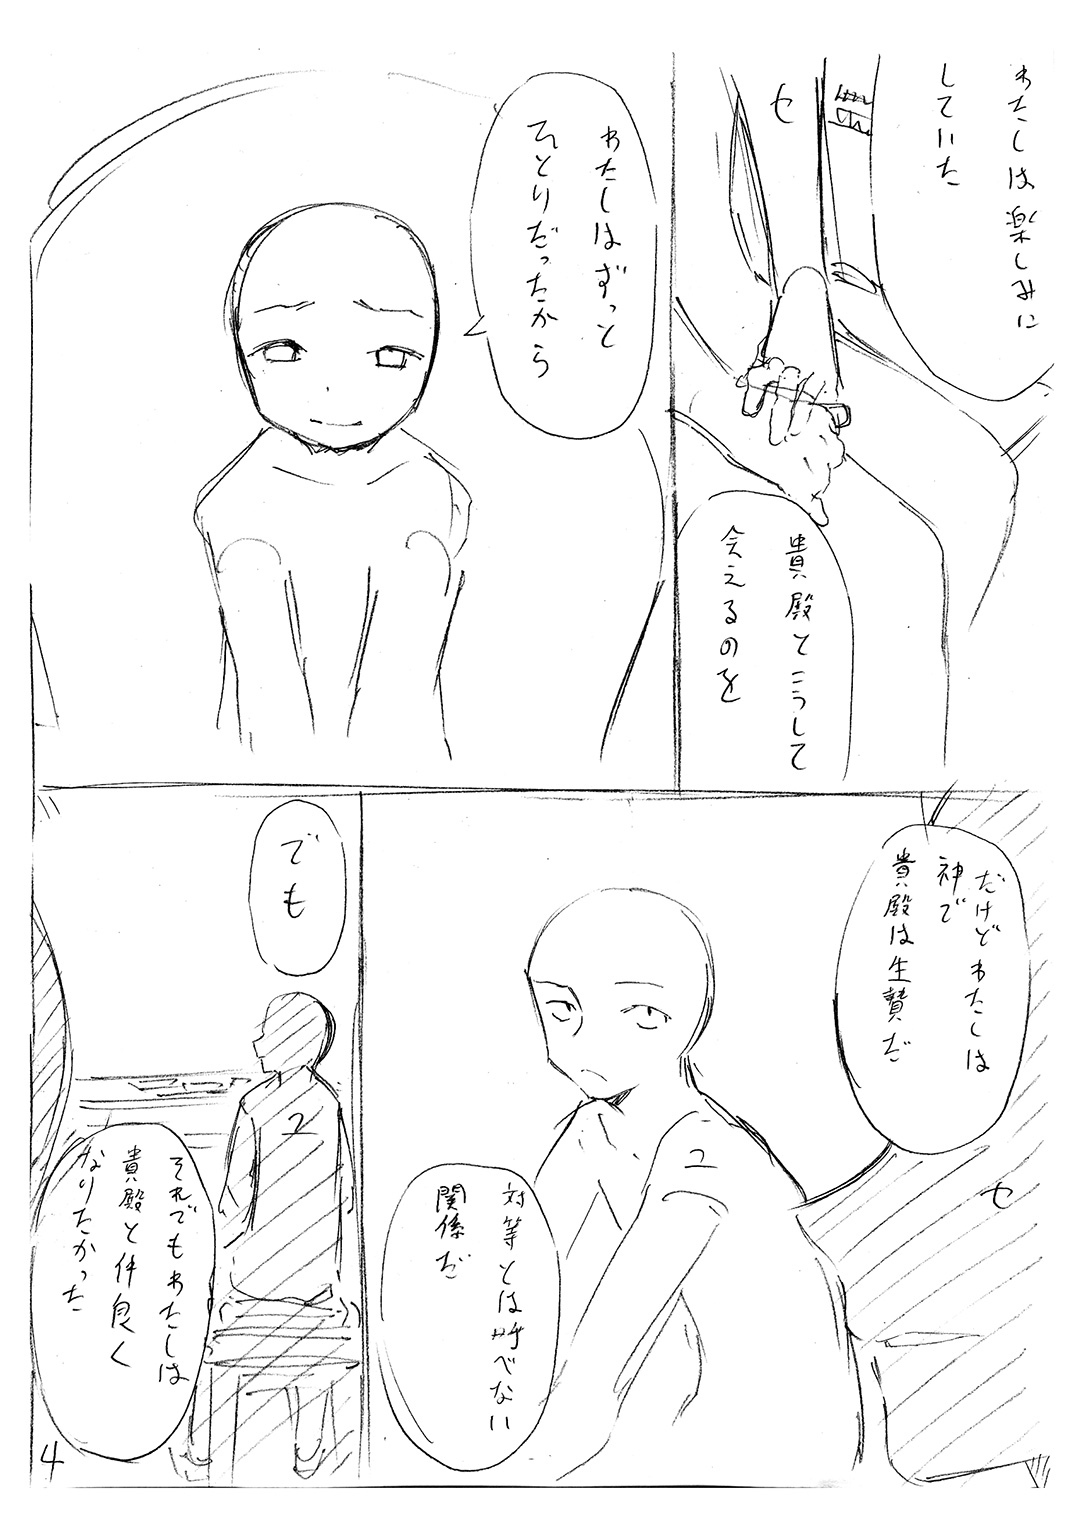 わたしは楽しみに
していた
セ
貴殿とこうして
会えるのを
わたしはずっと
ひとりだったから
だけどわたしは
神で
貴殿は生贄だ
セ
ユ
対等とは呼べない
関係だ
でも
ユ
それでもわたしは
貴殿と仲良く
なりたかった
4